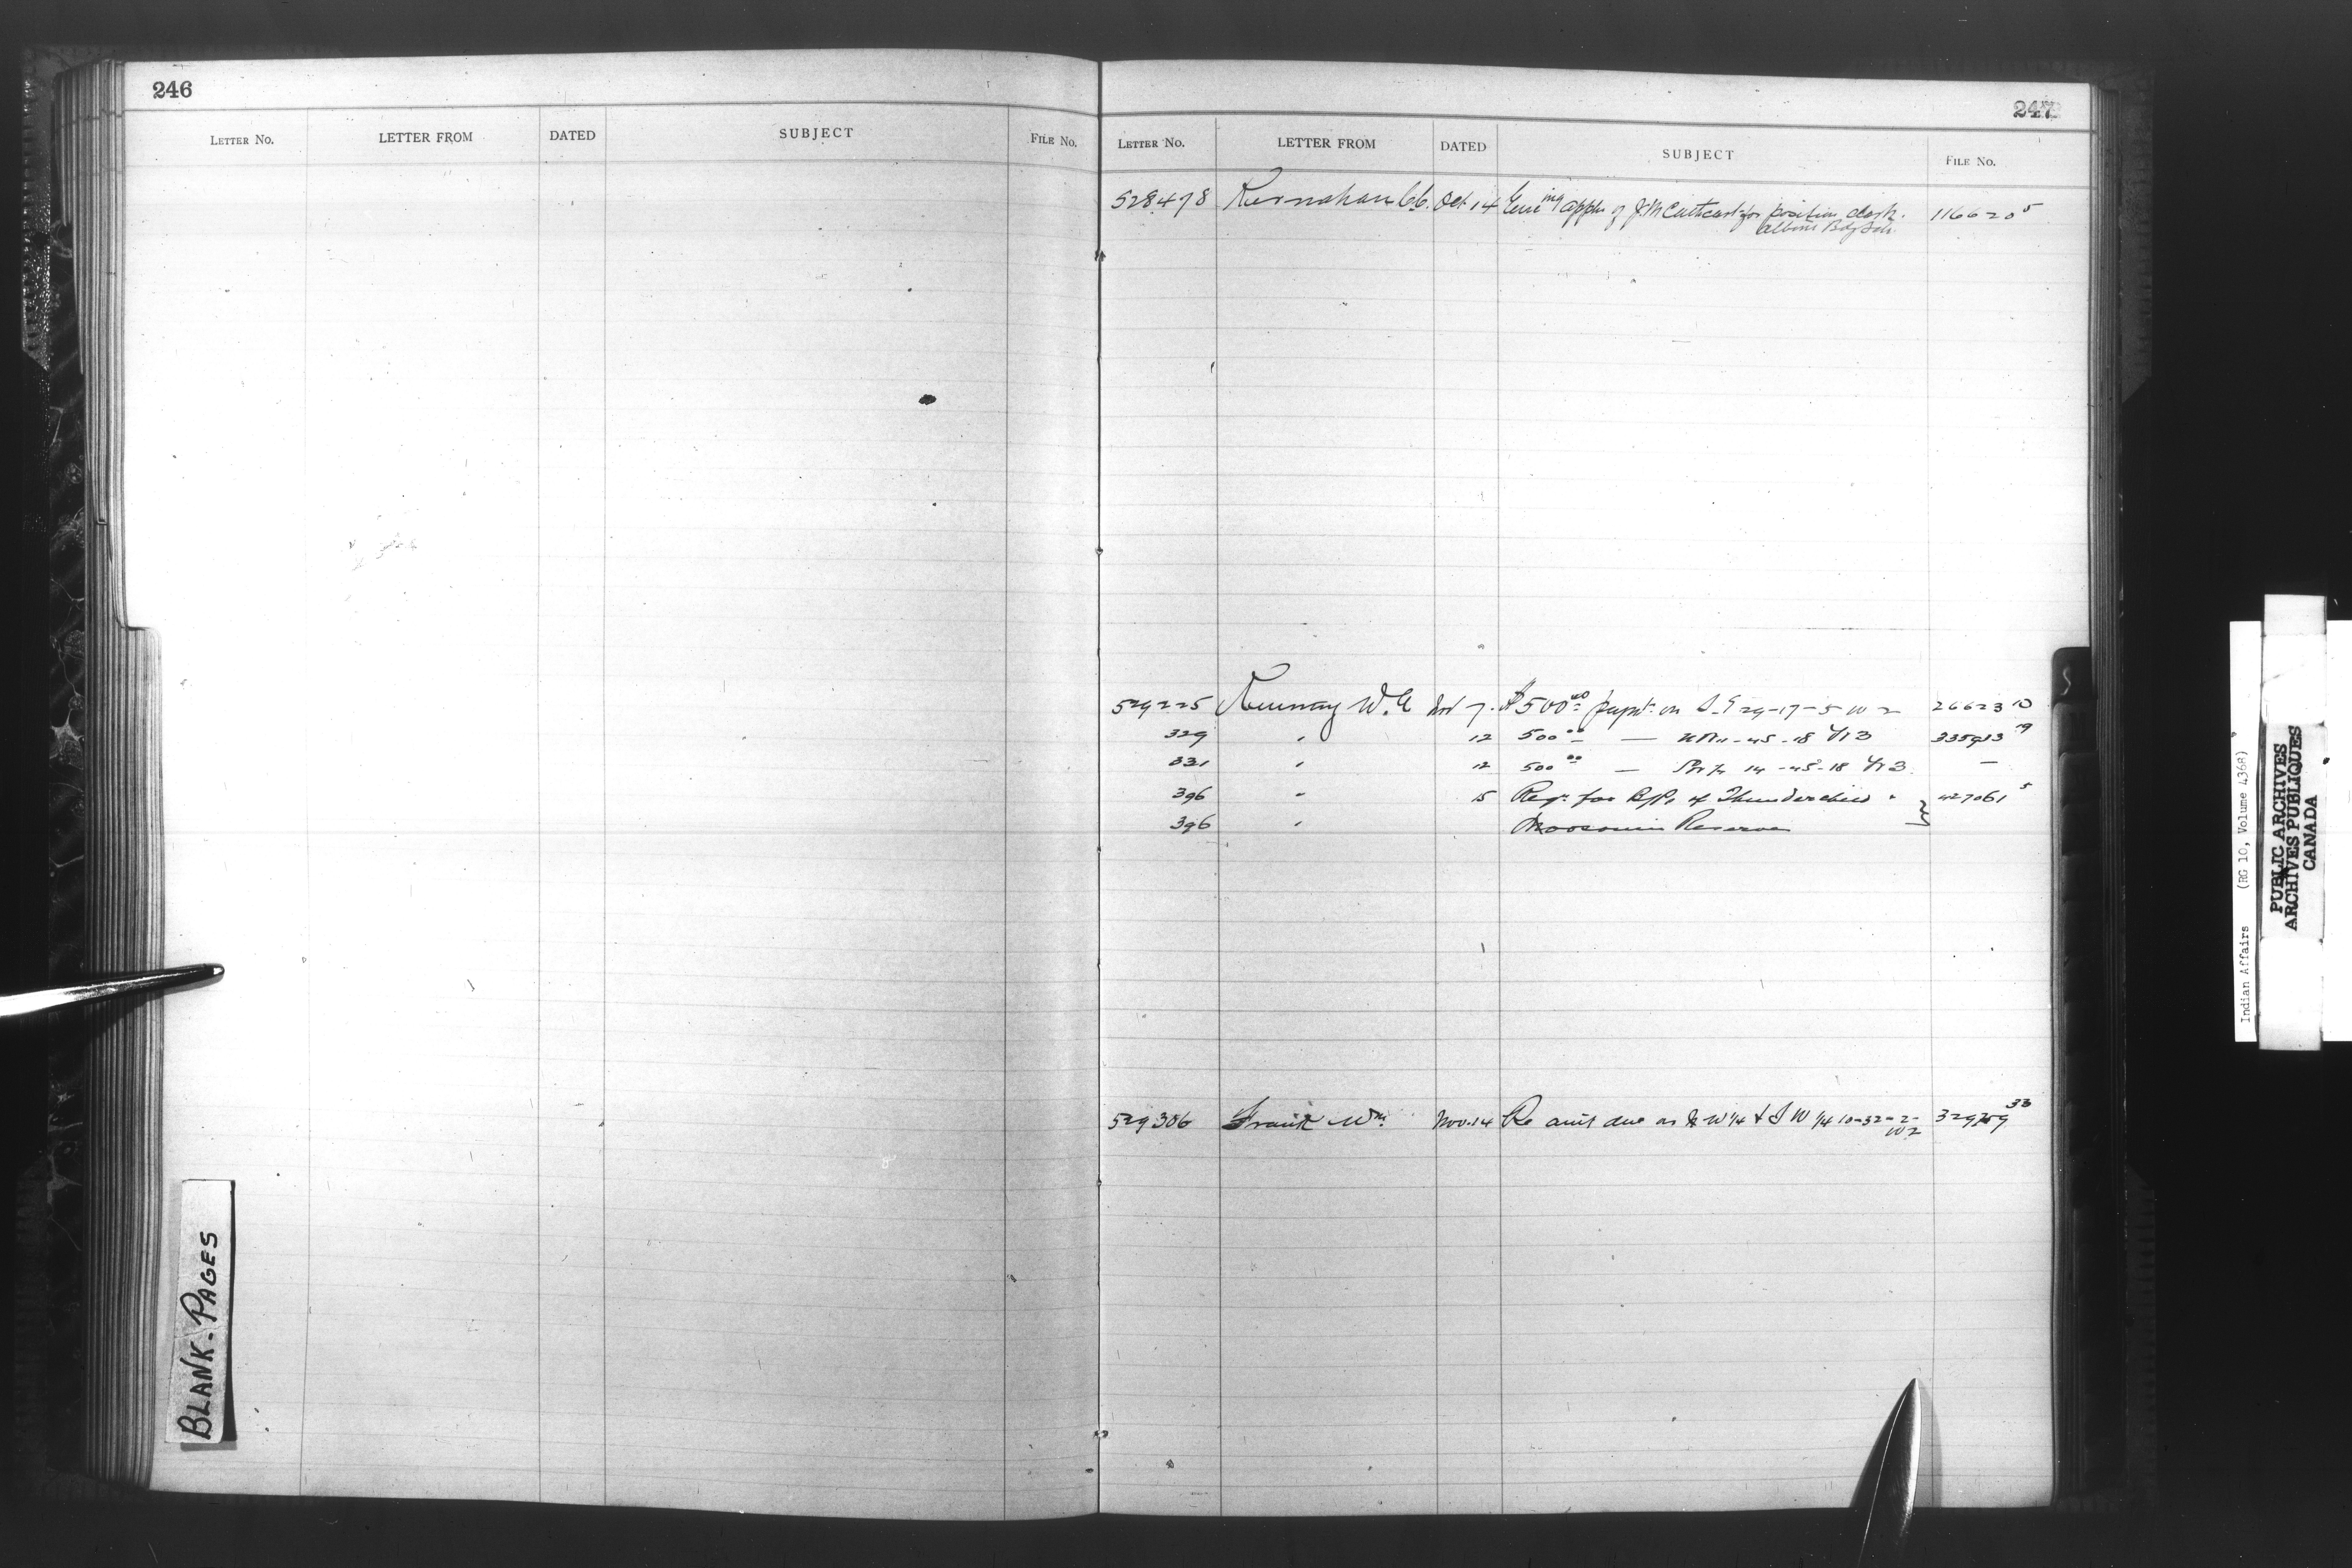 246
LETTER NO. LETTER FROM DATED SUBJECT FILE NO.
BLANK-PAGES
247
LETTER NO. LETTER FROM DATED SUBJECT FILE NO.
528478 Kernahan Oct 14 appln of J.M. Cathcart for position clerk. 116620 5
529225 W. Nov 7. $500 00 paymt on S.E 29-17-5 W 2 26623 10
329 " 12 500 00 — -45-18 W 3 335913 19
331 " 12 500 00 — 14-45-18 W 3 —
396 " 15 Reqn for of Thunderchild " 427061 5
396 " Moosomin Reserve
529306 Wm. Nov. 14 Re amt due on N W 1/4 & S W 1/4 10-32-2- 33
W 2
Indian Affairs (RG 10, Volume 4368)
PUBLIC ARCHIVES
ARCHIVES PUBLIQUES
CANADA